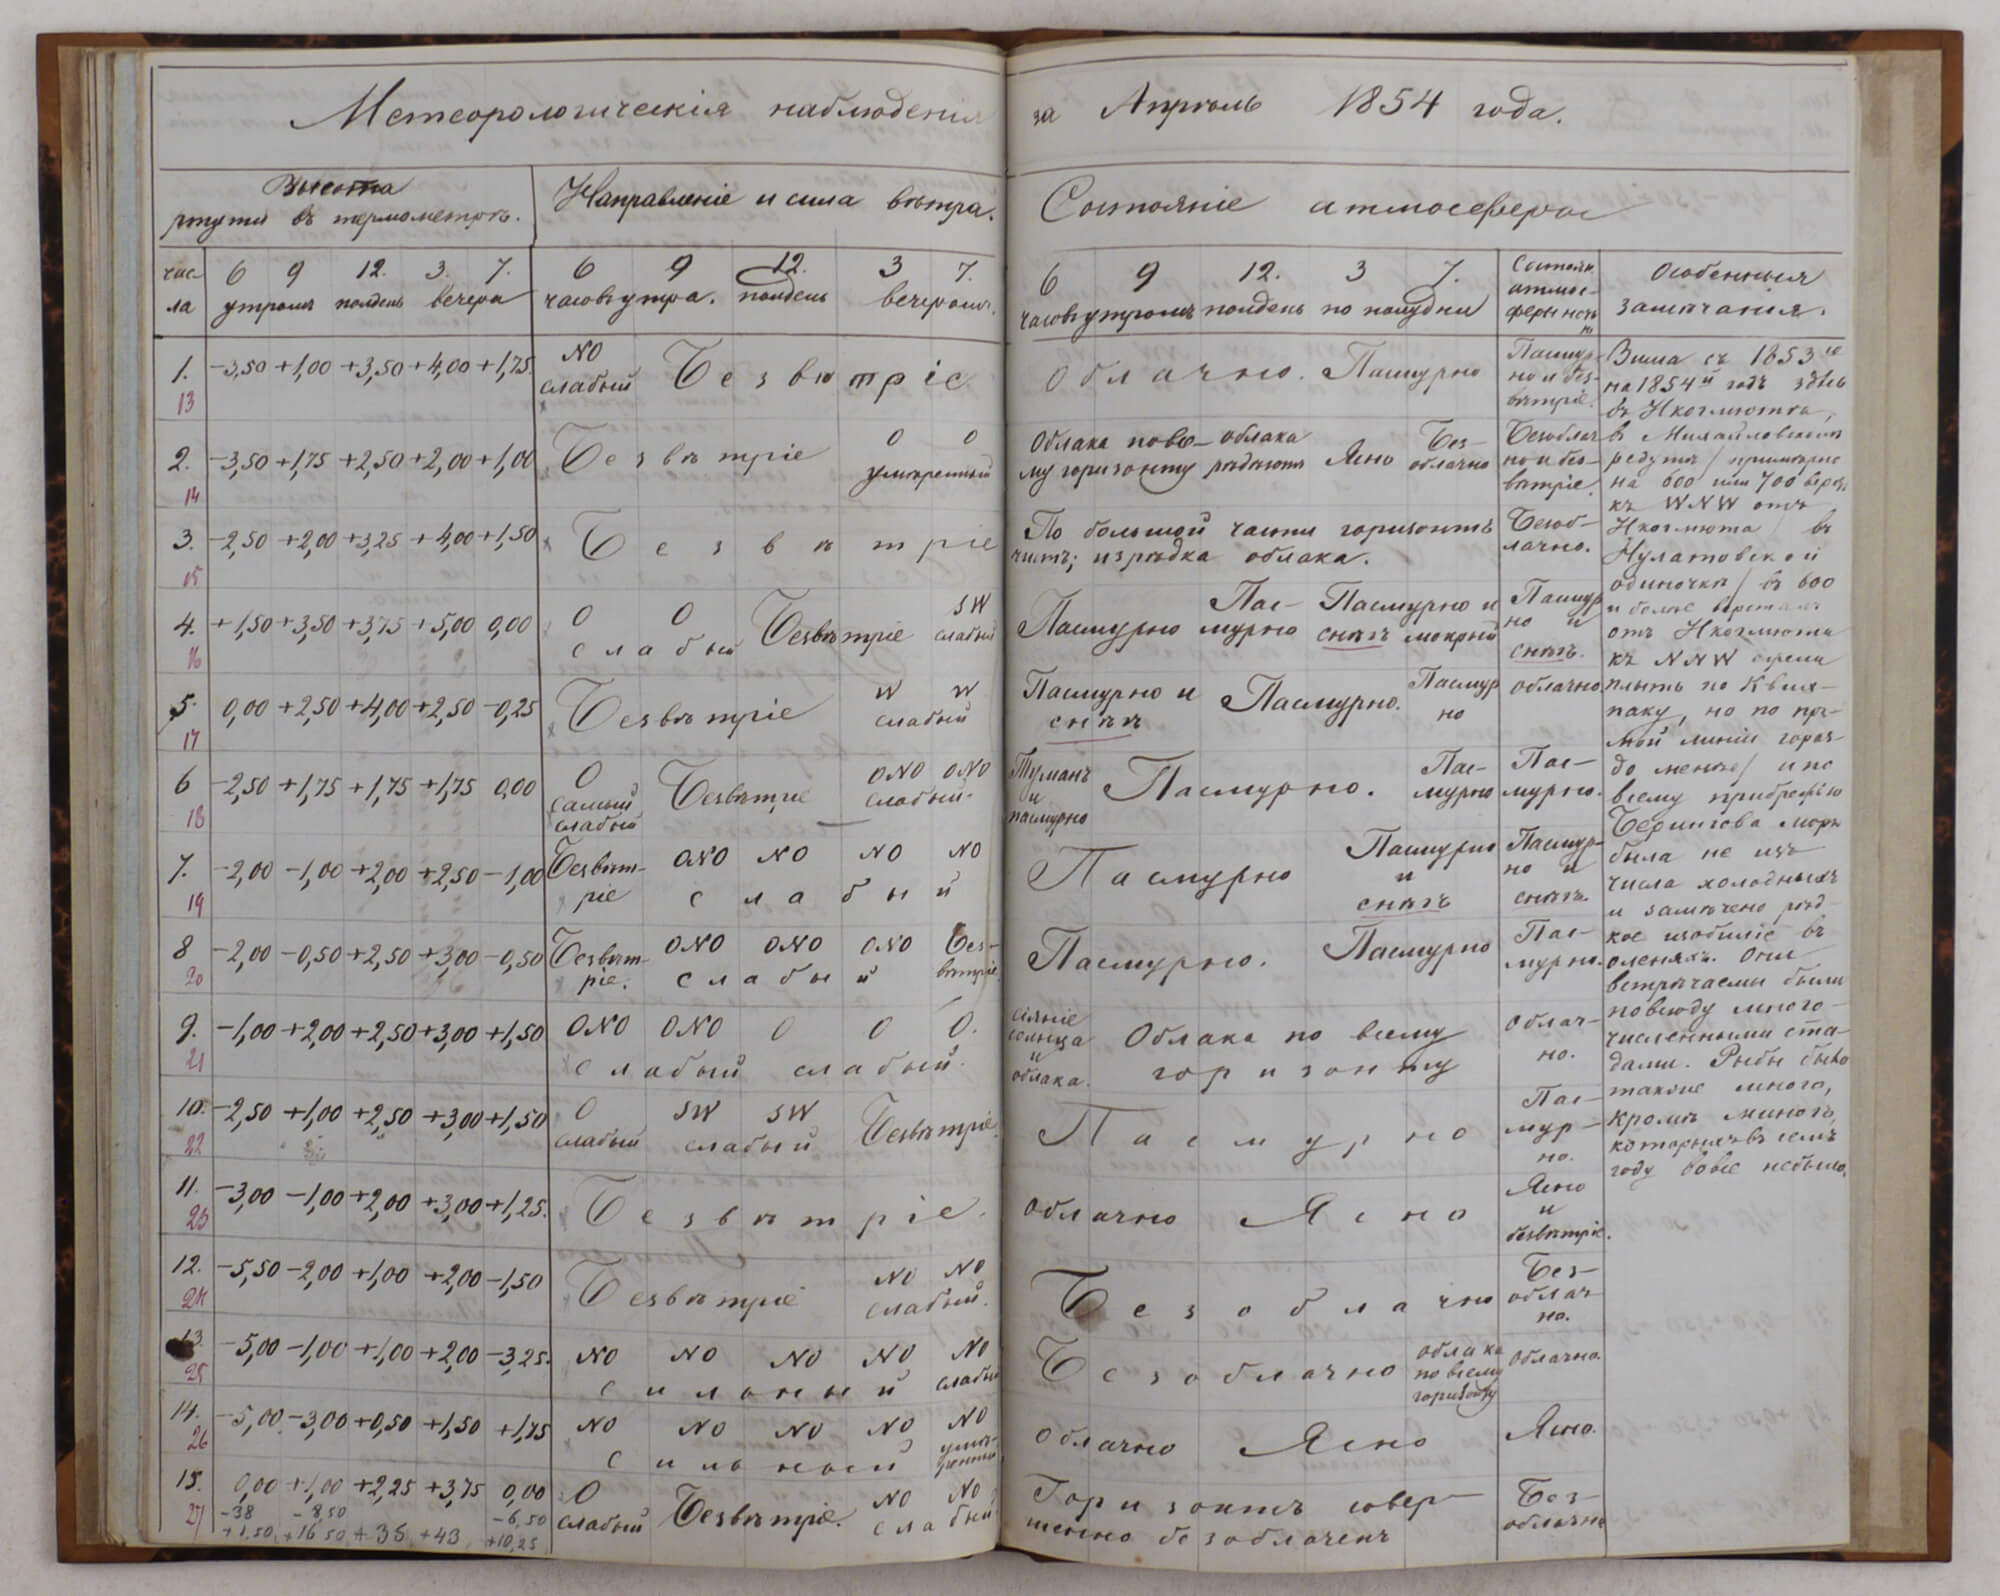 Метеорологическія наблюденія за Апрѣль 1854 года.
Высота ртути въ термометрѣ.
Направленіе и сила вѣтра.
Состояніе атмосферы
чис-
ла
6 9 12. 3. 7.
утромъ полдень вечера
6 9 12. 3 7.
часовъ утра. полдень вечеромъ.
6 9 12. 3 7.
часовъ утромъ полдень по полудни
Состоян.
атмос-
феры ночь
ю
Особенныя
замѣчанія.
1. -3,50 +1,00 +3,50 +4,00 +1,75
13
NO
слабый Безвѣтріе.
Облачно. Пасмурно
Пасмур-
но и без-
вѣтріе.
2. -3,50 +1,75 +2,50 +2,00 +1,00
14
Безвѣтріе O O
умѣренный
Облака по все- облака Ясно Без-
му горизонту рѣдѣютъ облачно
Безоблач
но и без-
вѣтріе.
3. -2,50 +2,00 +3,25 +4,00 +1,50
15
Безвѣтріе
По большой части горизонтъ
чистъ; изрѣдка облака.
Безоб-
лачно.
4. +1,50 +3,50 +3,75 +5,00 0,00
16
O O Безвѣтріе SW
слабый слабый
Пас- Пасмурно и
Пасмурно мурно снѣгъ мокрый
Пасмур
но и
снѣгъ.
5. 0,00 +2,50 +4,00 +2,50 -0,25
17
Безвѣтріе W W
слабый
Пасмурно и Пасмурно. Пасмур
снѣгъ но
облачно
6 -2,50 +1,75 +1,75 +1,75 0,00
18
O Безвѣтріе ONO ONO
самый слабый.
слабый
Туманъ Пасмурно. Пас-
и мурно
пасмурно
Пас-
мурно.
7. -2,00 -1,00 +2,00 +2,50 -1,00
19
Безвѣт- ONO NO NO NO
ріе слабый
Пасмурно Пасмурно
и
снѣгъ
Пасмур-
но и
снѣгъ.
8 -2,00 -0,50 +2,50 +3,00 -0,50
20
Безвѣт- ONO ONO ONO Без-
ріе. слабый вѣтріе
Пасмурно. Пасмурно
Пас-
мурно.
9. -1,00 +2,00 +2,50 +3,00 +1,50
21
ONO ONO O O O.
слабый слабый.
сіяніе
солнца Облака по всему
и горизонту
облака.
облач-
но.
10. -2,50 +1,00 +2,50 +3,00 +1,50
22
O SW SW Безвѣтріе.
слабый слабый
Пасмурно
Пас-
мур-
но.
11. -3,00 -1,00 +2,00 +3,00 +1,25.
23
Безвѣтріе.
облачно Ясно
Ясно
и
безвѣтріе.
12. -5,50 -2,00 +1,00 +2,00 -1,50
24
Безвѣтріе NO NO
слабый.
Безоблачно
Без-
облач-
но.
13. -5,00 -1,00 +1,00 +2,00 -3,25.
25
NO NO NO NO NO
сильный слабый
Безоблачно облака
по всему
горизонту
облачно.
14. -5,00 -3,00 +0,50 +1,50 +1,75
26
NO NO NO NO NO
сильный умѣ-
ренный
облачно Ясно
Ясно.
15. 0,00 +1,00 +2,25 +3,75 0,00
27
-38 -8,50 -6,50
+1,50 +16 50 +35 +43 +10,25
O Безвѣтріе. NO NO
слабый слабый
Горизонтъ совер-
шенно безоблаченъ
Без-
облачно
Зима съ 1853 го
на 1854 й годъ здѣсь
въ Икогмютѣ,
въ Михайловскомъ
редутѣ / примѣрно
на 600 или 700 верстъ
къ WNW отъ
Икогмюта / въ
Нулатовской
одиночкѣ / въ 600
и болѣе верстахъ
отъ Икогмюта
къ NNW ежели
плыть по Квих-
паку, но по пря-
мой линіи горазд-
до менѣе / и по
всему прибрежью
Берингова моря
была не изъ
числа холодныхъ
и замѣчено рѣд-
кое изобиліе въ
оленяхъ. Они
встрѣчаемы были
повсюду много-
численными ста-
дами. Рыбы было
также много,
кромѣ миноги,
которыхъ въ семъ
году вовсе не было.